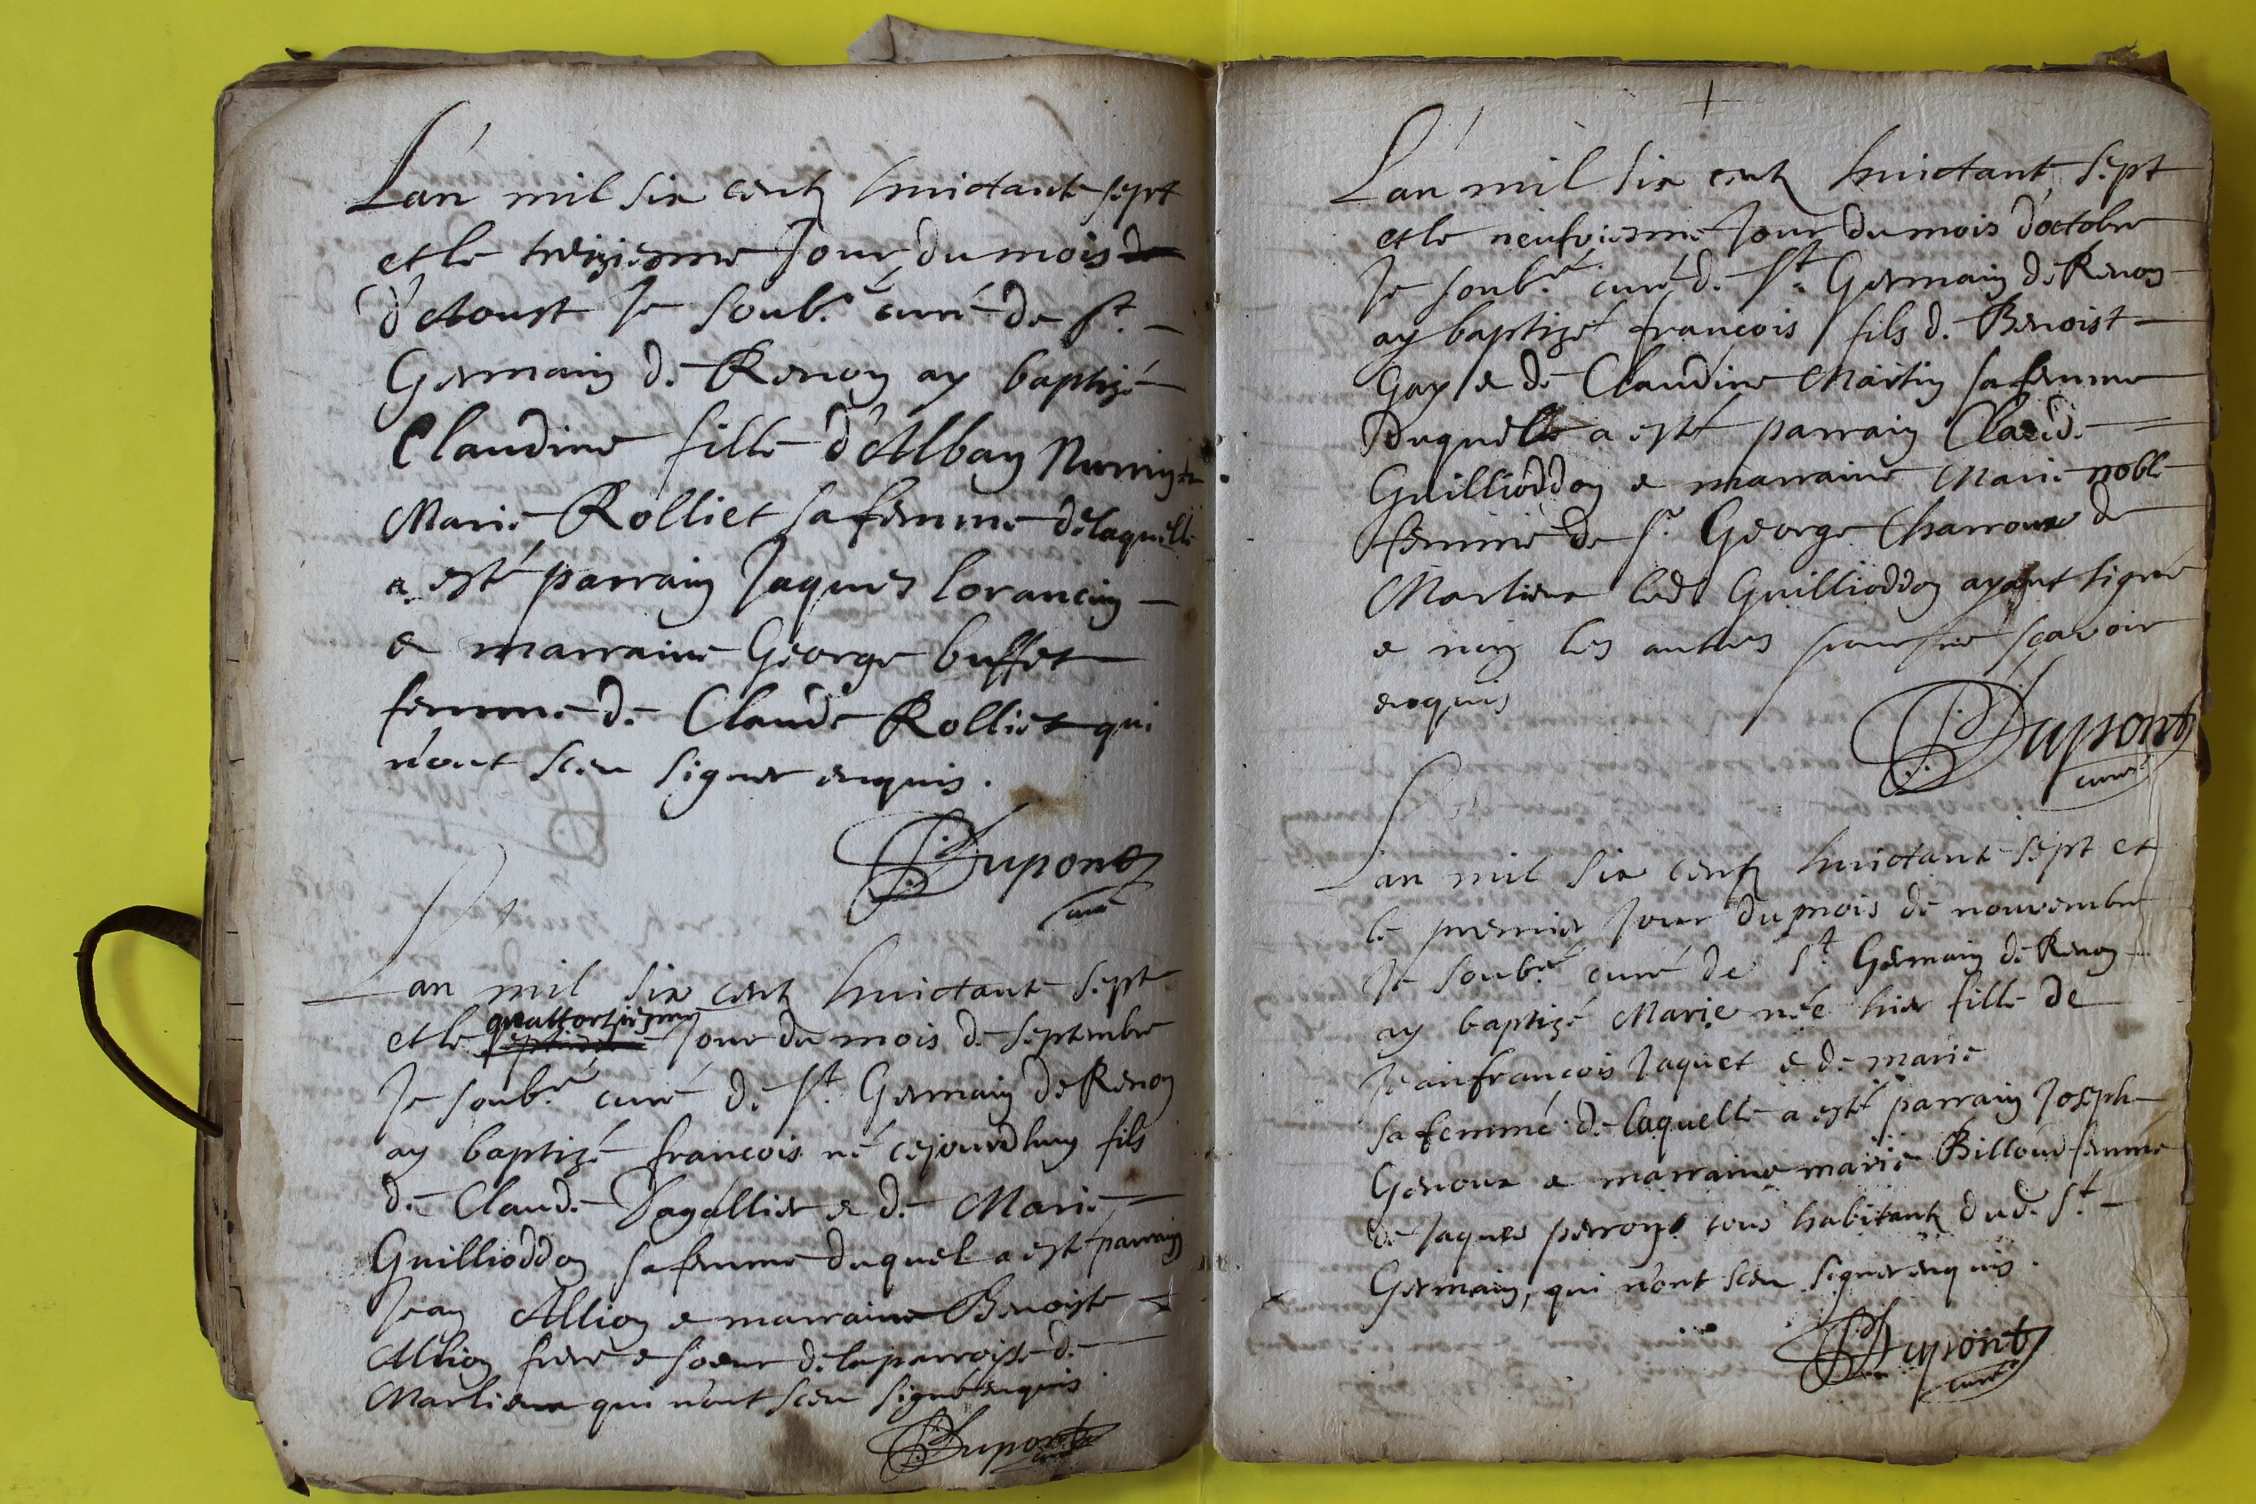 L'an mil six centz huictante sept
et le treiziesme Jour du mois de
d'Aoust Je soub.é curé de st.
Germain de Renon ay baptizé
Claudine fille d'Alban Nurrin et de
Marie Rolliet sa femme de laquelle
a esté parrain Jaques lorancin
e marraine George buffet
femme de Claude Rolliet qui
n'ont sceu signer enquis.
Dupont
curé
Lan mil six centz huictante sept
quattorsiezme
et le Jour du mois de septembre
Je soub.é curé de st. Germain de Renon
ay baptizé francois né cejourdhuy fils
de Claude Dagallier e de Marie
Guillioddon sa femme duquel a esté parrain
Jean Allion e marraine Benoiste
Allion frere e soeur de la parroisse de
Marlieux qui n'ont sceu signé enquis.
Dupont
curé
L'an mil six centz huictante sept
et le neufviesme Jour du mois d'octobre
Je soub.é curé de st. Germain de Renon
ay baptizé francois fils de Benoist
Gay e de Claudine Martin sa femme
Duquelle a esté parrain Claude
Guillioddon e marraine Marie noble
femme de sr. George Charroux de
Marlieux led. Guillioddon ayant signé
e non les autres pour ne scavoir
enquis
Dupont
curé
Lan mil six centz huictante sept et
le premier Jour du mois de nouvembre
Je soub.é curé de st. Germain de Renon
ay baptizé Marie née hier fille de
Jean francois Jaquet e de marie
sa femme de laquelle a esté parrain Joseph
Genoux e marraine marie Billoud femme
de Jaques perron tous habitantz dud. st.
Germain, qui n'ont sceu signer enquis.
Dupont
curé